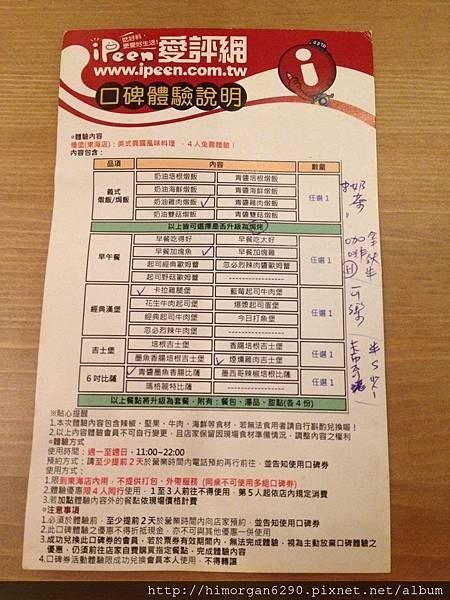 吃好料,
更愛好生活!
iPeen 愛評網
www.ipeen.com.tw
口碑體驗說明
※體驗內容
慢堡(東海店):美式異國風味料理 - 4人免費體驗!
內容包含:
品項 內容 數量
義式燉飯/焗飯 奶油培根燉飯 青醬培根燉飯 任選 1
奶油海鮮燉飯 青醬海鮮燉飯
奶油雞肉燉飯 青醬雞肉燉飯
奶油雙菇燉飯 青醬雙菇燉飯
以上皆可選擇是否升級為焗烤
早午餐 早餐吃得好 早餐吃太好 任選 1
早餐加塊魚 早餐加塊雞
起司經典歐姆蕾 忽必烈辣肉醬歐姆蕾
起司野菇歐姆蕾 ------------
經典漢堡 卡拉雞腿堡 藍莓起司牛肉堡 任選 1
花生牛肉起司堡 爆漿起司蛋堡
經典起司牛肉堡 今日打魚堡
忽必烈辣牛肉堡 ------------
吉士堡 培根吉士堡 香腸培根吉士堡 任選 1
墨魚香腸培根吉士堡 煙燻雞肉吉士堡
6吋比薩 青醬墨魚香腸比薩 墨西哥辣椒培根比薩 任選 1
瑪格麗特比薩 ------------
以上餐點將升級為套餐,附有:餐包、湯品、甜點(各4份)
※貼心提醒
1.本次體驗內容包含辣椒、堅果、牛肉、海鮮等食材,若無法食用者請自行斟酌兌換喔!
2.以上內容體驗會員不可自行變更,且店家保留因現場食材準備情況,調整內容之權利
※體驗方式
使用時間:週一至週日,11:00~22:00
預約方式:請至少提前2天於營業時間內電話預約再行前往,並告知使用口碑券
使用說明:
1.限到東海店內用,不提供打包、外帶服務 (同桌不可使用多組口碑券)
2.體驗優惠限4人同行使用,1至3人前往不得使用,第5人起依店內規定消費
3.若加點體驗內容外的餐點依現場價格計費
※注意事項
1.必須於體驗前,至少提前2天於營業時間內向店家預約,並告知使用口碑券
2.此口碑體驗之優惠不得折抵現金,亦不可與其他優惠一併使用
3.成功兌換此口碑券的會員,若於票券有效期間內,無法完成體驗,視為主動放棄口碑體驗之
優惠,仍須前往店家自費購買指定餐點,完成體驗內容
4.口碑券活動體驗限成功兌換會員本人使用,不得轉讓
奶茶
咖啡
可樂
http://himorgan6290.pixnet.net/album